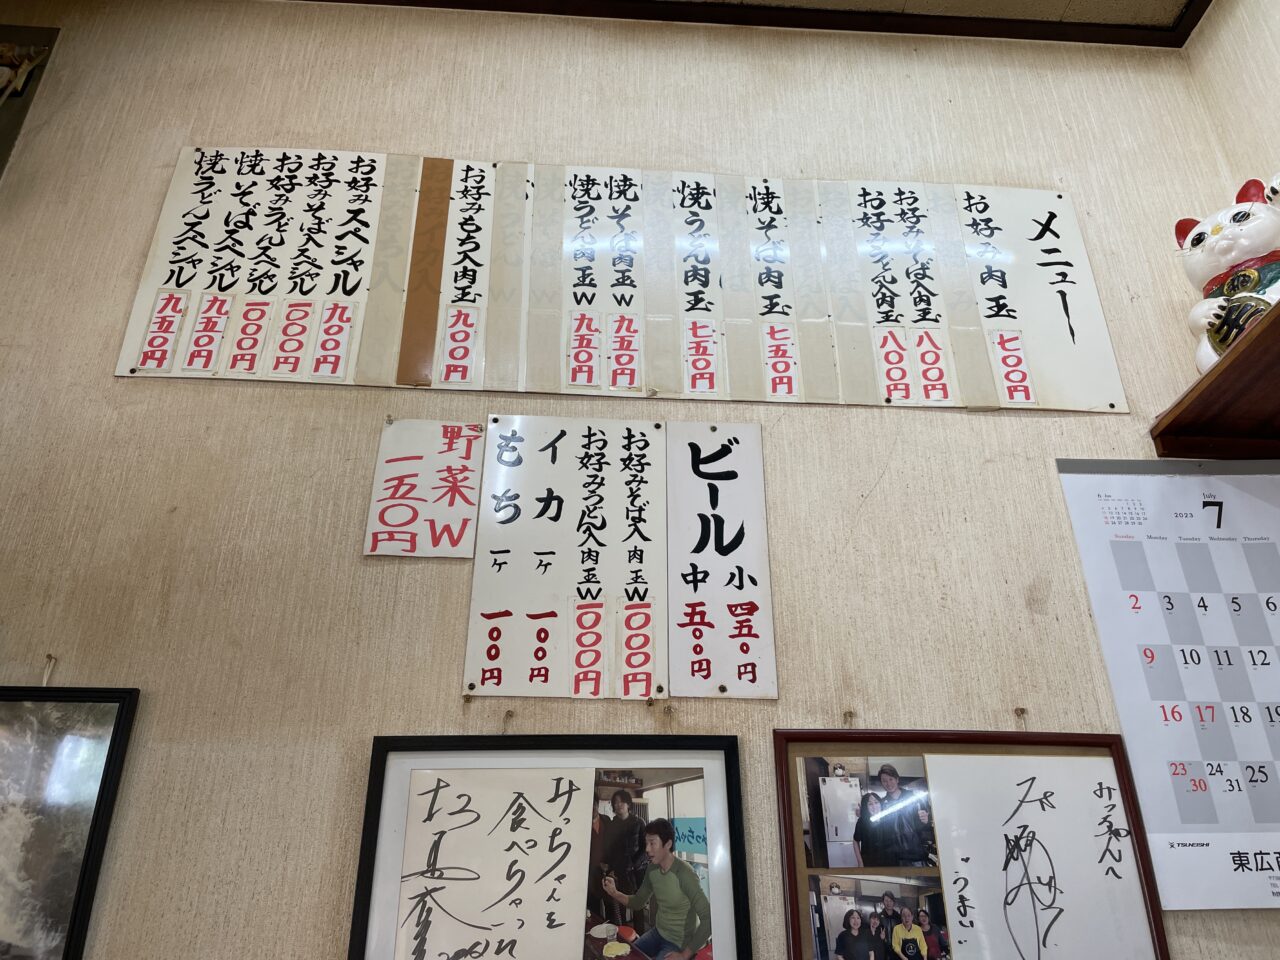 メニュー
お好み肉玉 七〇〇円
お好みそば入肉玉 八〇〇円
お好みうどん入肉玉 八〇〇円
焼そば肉玉 七五〇円
焼うどん肉玉 七五〇円
焼そば肉玉W 九五〇円
焼うどん肉玉W 九五〇円
お好みもち入肉玉 九〇〇円
お好みスペシャル 九〇〇円
お好みそば入スペシャル 一〇〇〇円
お好みうどんスペシャル 一〇〇〇円
焼そばスペシャル 九五〇円
焼うどんスペシャル 九五〇円
ビール
小 四五〇円
中 五〇〇円
お好みそば入肉玉W 一〇〇〇円
お好みうどん入肉玉W 一〇〇〇円
イカ 一ケ 一〇〇円
もち 一ケ 一〇〇円
野菜W
一五〇円
July
2023 7
Sunday Monday Tuesday Wednesday Thursday
2 3 4 5 6
9 10 11 12
16 17 18 19
23 24 25
30 31
TSUNEISHI
東広
みっちゃんを
食べちゃって
みっちゃんへ
うまい